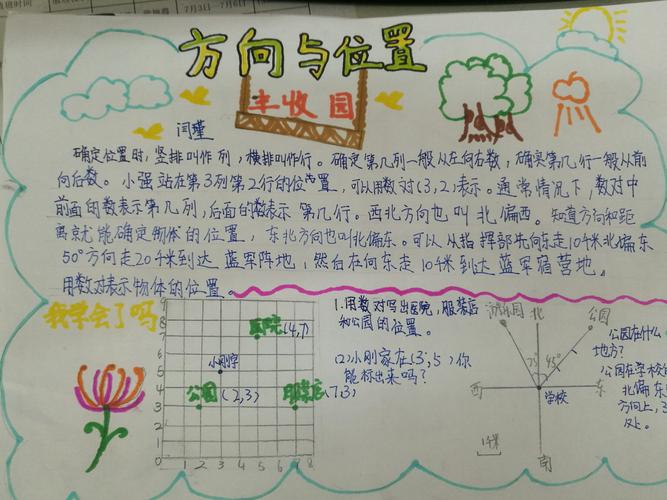 7月3日—7月6日
方向与位置
丰收园
闫瑾
确定位置时，竖排叫作列，横排叫作行。确定第几列一般从左向右数，确定第几行一般从前
向后数。小强站在第3列第2行的位置，可以用数对(3,2)表示。通常情况下，数对中
前面的数表示第几列，后面的数表示第几行。西北方向也叫北偏西。知道方向和距
离就能确定物体的位置，东北方向也叫北偏东。可以从指挥部先向东走10千米北偏东
50°方向走20千米到达蓝军阵地，然后在向东走10千米到达蓝军宿营地。
用数对表示物体的位置。
我学会了吗
9
8
7
6
5
4
3
2
1
0 1 2 3 4 5 6 7 8
医院(4,7)
小刚家
公园(2,3)
服装店(7,3)
1.用数对写出医院，服装店
和公园的位置。
(2)小刚家在(3,5)你
能标出来吗？
游乐园
北
公园
25°
45°
西
东
学校
南
1千米
公园在什么
地方？
公园在学校的
北偏东
方向上，3
处。